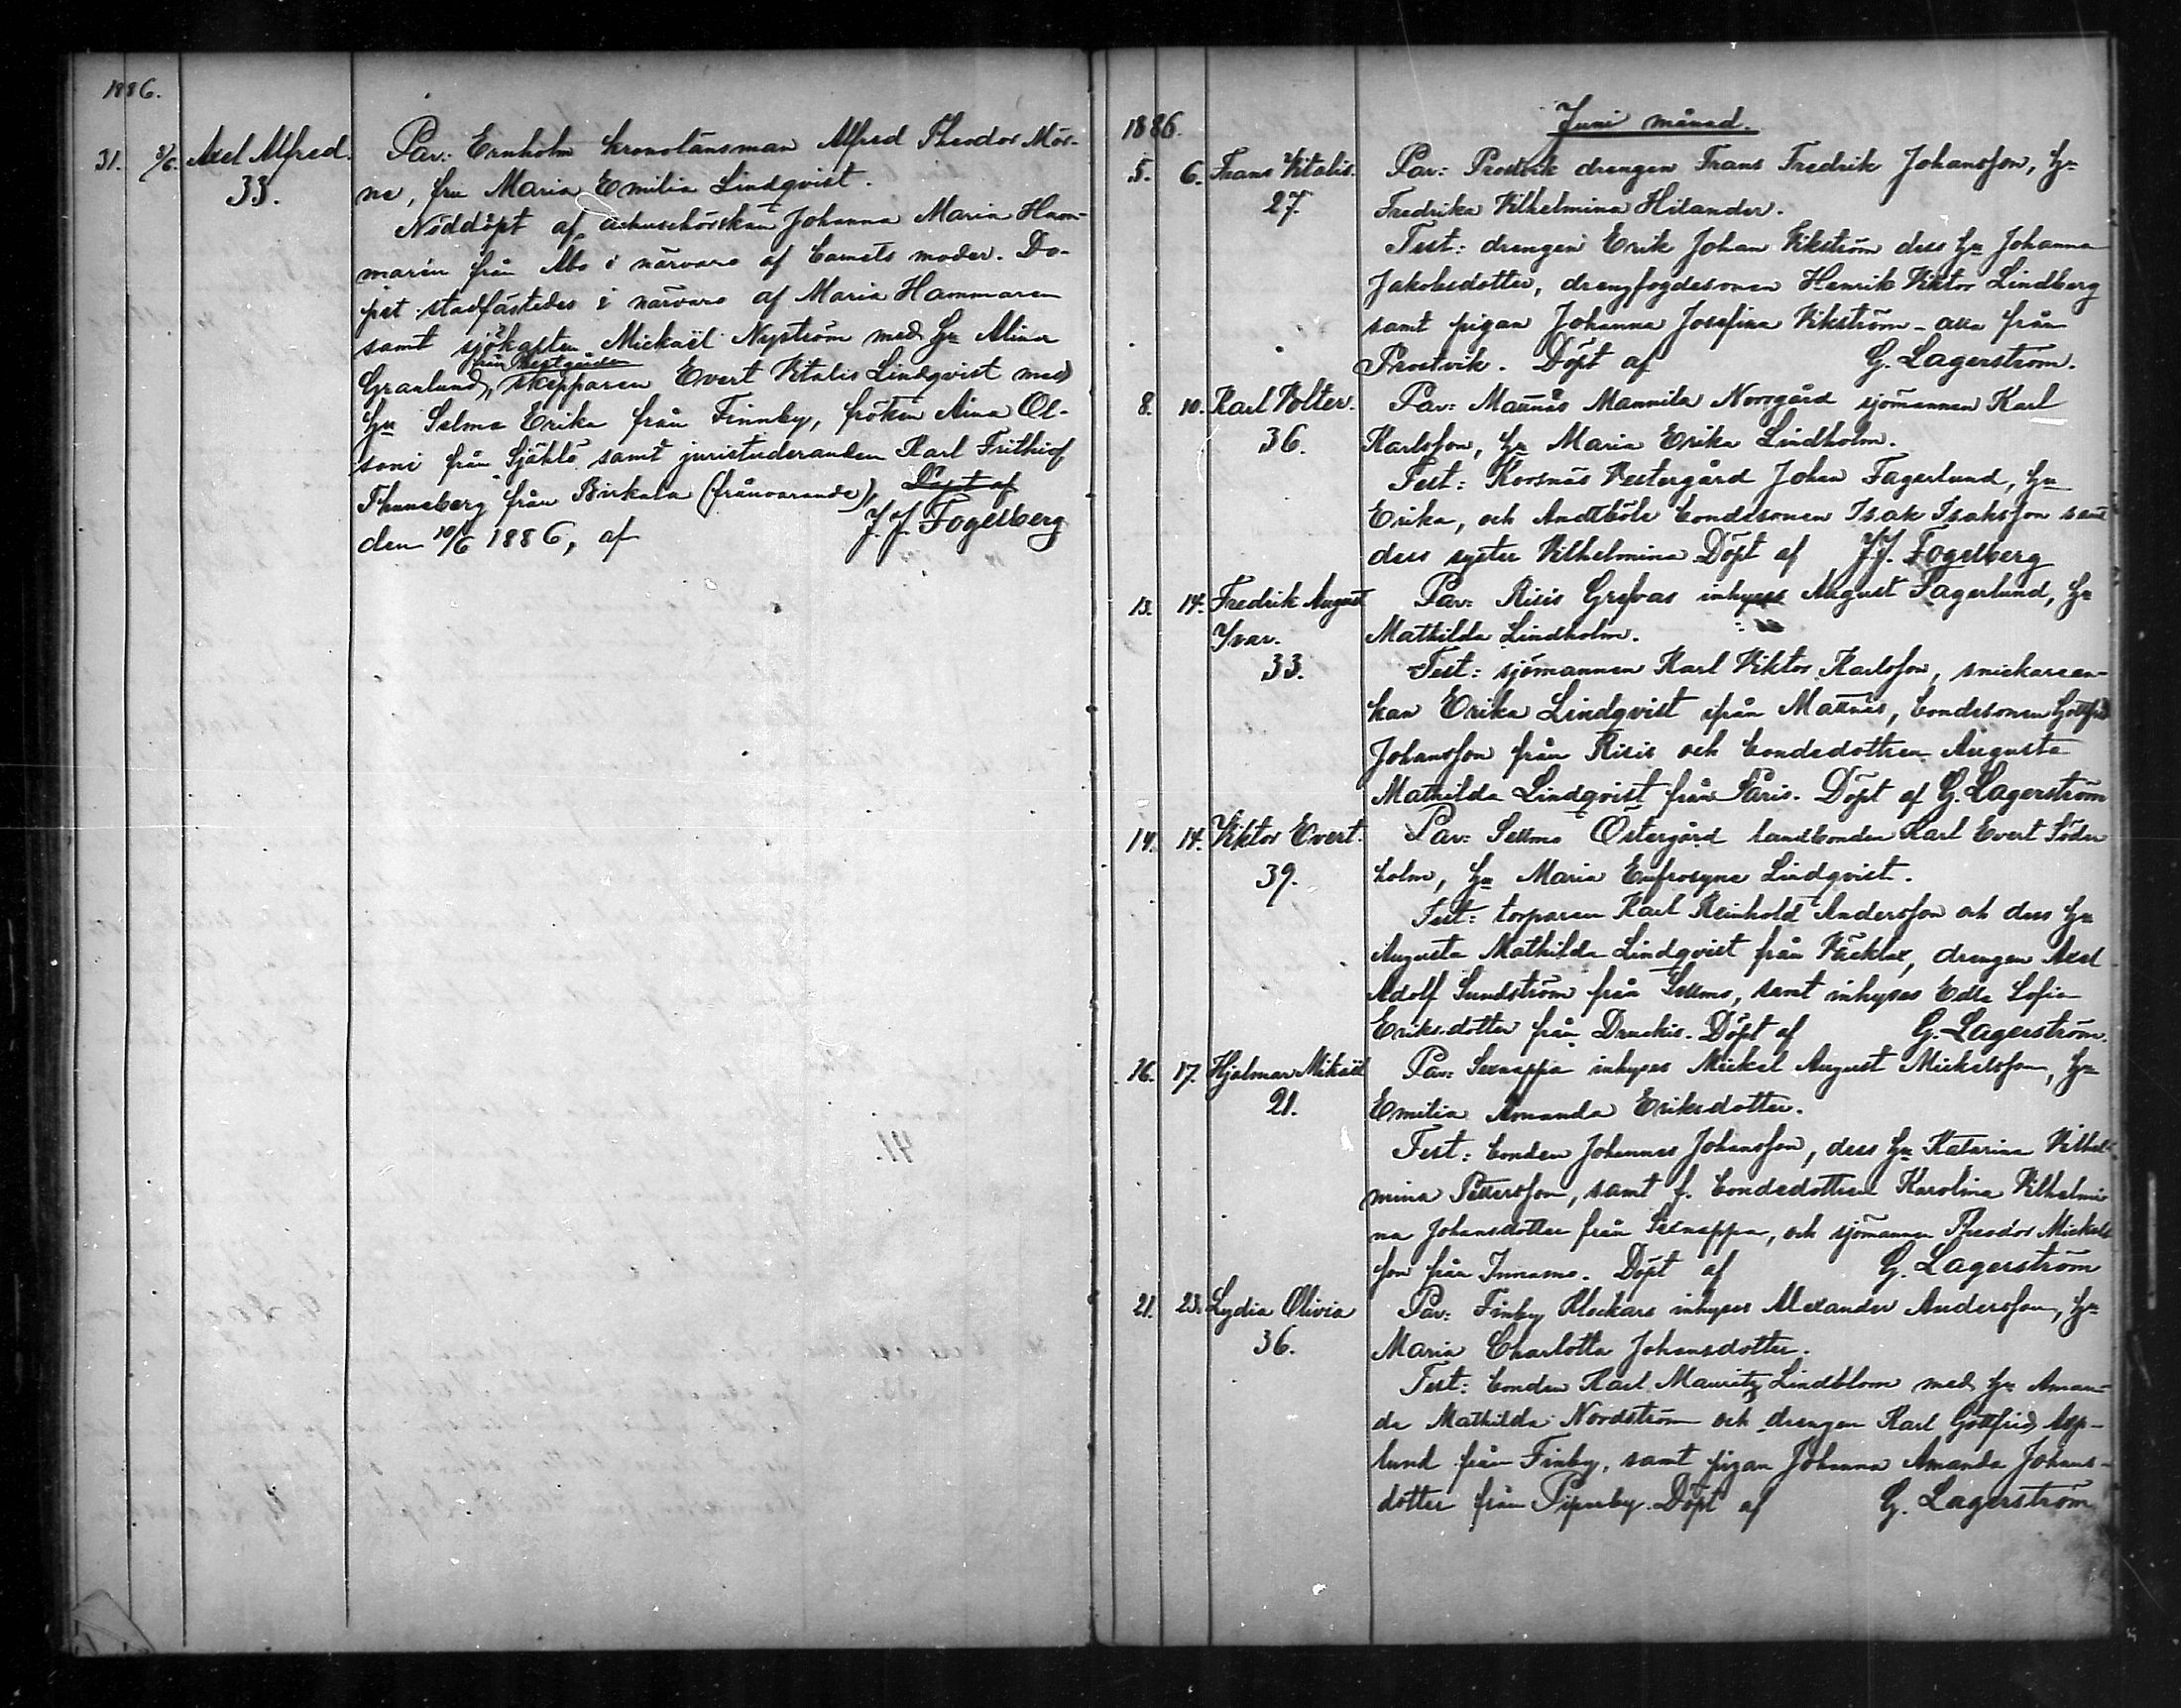 1886.
31. 8/6. Axel Alfred. Par: Ernholm kronolänsman Alfred Theodor Mör-
33. ne, fru Maria Emilia Lindqvist.
Nöddöpt af Johanna Maria Ham-
marén från Åbo i närvaro af barnets moder. Do-
pet stadfästedes i närvaro af Maria Hammaren
samt sjökapten Mickaël Nyström med hu Alina
från Prestgården
Granlund, skepparen Evert Vitalis Lindqvist med
hu Selma Erika från Finnby, fröken Aina Ol-
soni från Själö samt juristuderanden Karl Frithiof
Thuneberg från Birkala (frånvarande), Döpt af
den 10/6 1886, af J. J. Fogelberg
1886. Juni månad.
5. 6. Frans Vitalis. Par: Prostvik drengen Frans Fredrik Johansson, hu
27. Fredrika Vilhelmina Hilander.
Test: drengen Erik Johan Vikström dess hu Johanna
Jakobsdotter, drengfogdesonen Henrik Viktor Lindberg
samt pigan Johanna Josefina Vikström - alla från
Prostvik. Döpt af G. Lagerström.
8. 10. Karl Volter. Par: Mattnäs Mannila Norrgård sjömannen Karl
36. Karlsson, hu Maria Erika Lindholm.
Test: Korsnäs Vestergård Johan Fagerlund, hu
Erika, och Andtböle bondesonen Isak Isaksson samt
dess syster Vilhelmina Döpt af J. J. Fogelberg
13. 14. Fredrik August Par: Risis Grefvas inhyses August Fagerlund, hu
Yvar. Mathilda Lindholm.
33. Test: sjömannen Karl Viktor Karlsson, snickareen-
kan Erika Lindqvist ifrån Mattnäs, bondesonen Gottfrid
Johansson från Risis och bondedottren Augusta
Mathilda Lindqvist från Päris. Döpt af G. Lagerström
14. 14. Viktor Evert. Par: Sellmo Östergård landbonden Karl Evert Söder
39. holm, hu Maria Eufrosyne Lindqvist.
Test: torparen Karl Reinhold Andersson och dess hu
Augusta Mathilda Lindqvist från drengen Axel
Adolf Sundström från Sellmo, samt inhyses Edla Sofia
Eriksdotter från Druckis. Döpt af G. Lagerström.
16. 17. Hjalmar Mikaël Par: Sexnappa inhyses Mickel August Mickelsson, hu
21. Emilia Amanda Eriksdotter.
Test: bonden Johannes Johansson, dess hu Katarina Vilhel-
mina Pettersson, samt f. bondedottren Karolina Vilhelmi-
na Johansdotter från Sexnappa, och sjömannen Theodor Mickels
son från Innamo. Döpt af G. Lagerström
21. 23. Lydia Olivia Par: Finby Klockars inhyses Alexander Andersson, hu
36. Maria Charlotta Johansdotter.
Test: bonden Karl Mauritz Lindblom med hu Aman-
da Mathilda Nordström och drengen Karl Gottfrid Asp-
lund från Finby, samt pigan Johanna Amanda Johans-
dotter från Piparby. Döpt af G. Lagerström